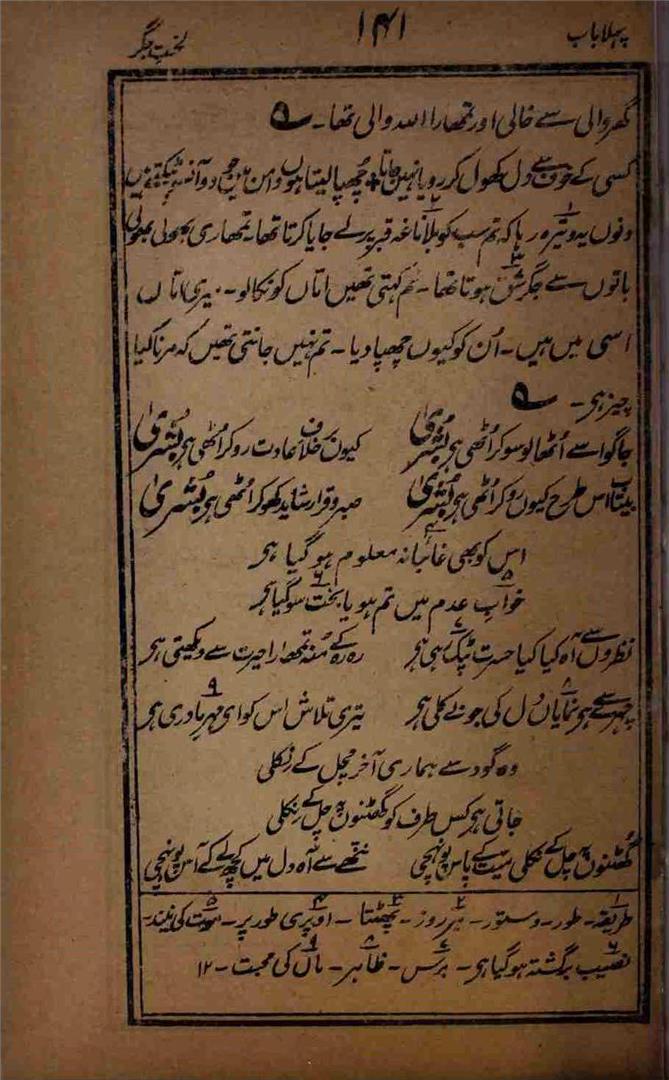 پہلا باب ۱۴۱ لختِ جگر
گھر والی سے خالی اور تمھارا اللہ والی تھا۔
کسی کے خوف سے دل کھول کر رویا نہیں جاتا + چھپا لیتا ہوں دامن میں جو دو آنسو ٹپکتے ہیں
دنوں یہ وتیرہ رہا کہ تم سب کو بلاناغہ قبر پر لے جایا کرتا تھا۔ تمھاری بھولی بھولی
باتوں سے جگر شق ہوتا تھا۔ تم کہتی تھیں اماں کو نکالو۔ میری اماں
اسی میں ہیں۔ اُن کو کیوں چھپا دیا۔ تم نہیں جانتی تھیں کہ مرنا کیا
چیز ہی۔
جاگو اسے اُٹھا لو سو کر اُٹھی ہی بُشریٰ کیوں برخلافِ عادت رو کر اُٹھی ہی بُشریٰ
بیتاب اس طرح کیوں ہو کر اُٹھی ہی بُشریٰ صبر و قرار شاید کھو کر اُٹھی ہی بُشریٰ
اس کو بھی غائبانہ معلوم ہو گیا ہی
خوابِ عدم میں تم ہو یا بخت سو گیا ہی
نظروں سے آہ کیا کیا حسرت ٹپک رہی ہی رہ رہ کے مُنہ تمھارا حیرت سے دیکھتی ہی
چہرے سے ہی نمایاں دل کی جو بے کلی ہی تیری تلاش اس کو ای مہرِ مادری ہی
وہ گود سے ہماری آخر مچل کے نکلی
جاتی ہی کس طرف کو گھٹنوں پہ چل کے نکلی
گھٹنوں پہ چل کے نکلی میت کے پاس پہونچی ننھے سے آہ دل میں کچھ لے کے آس پہونچی
۱ طریقہ۔ طور۔ دستور۔ ۲ ہر روز۔ ۳ پھٹتا۔ ۴ اوپری طور پر۔ ۵ موت کی نیند۔
۶ نصیب برگشتہ ہو گیا ہی۔ ۷ برس۔ ۸ ظاہر۔ ۹ ماں کی محبت۔ ۱۲